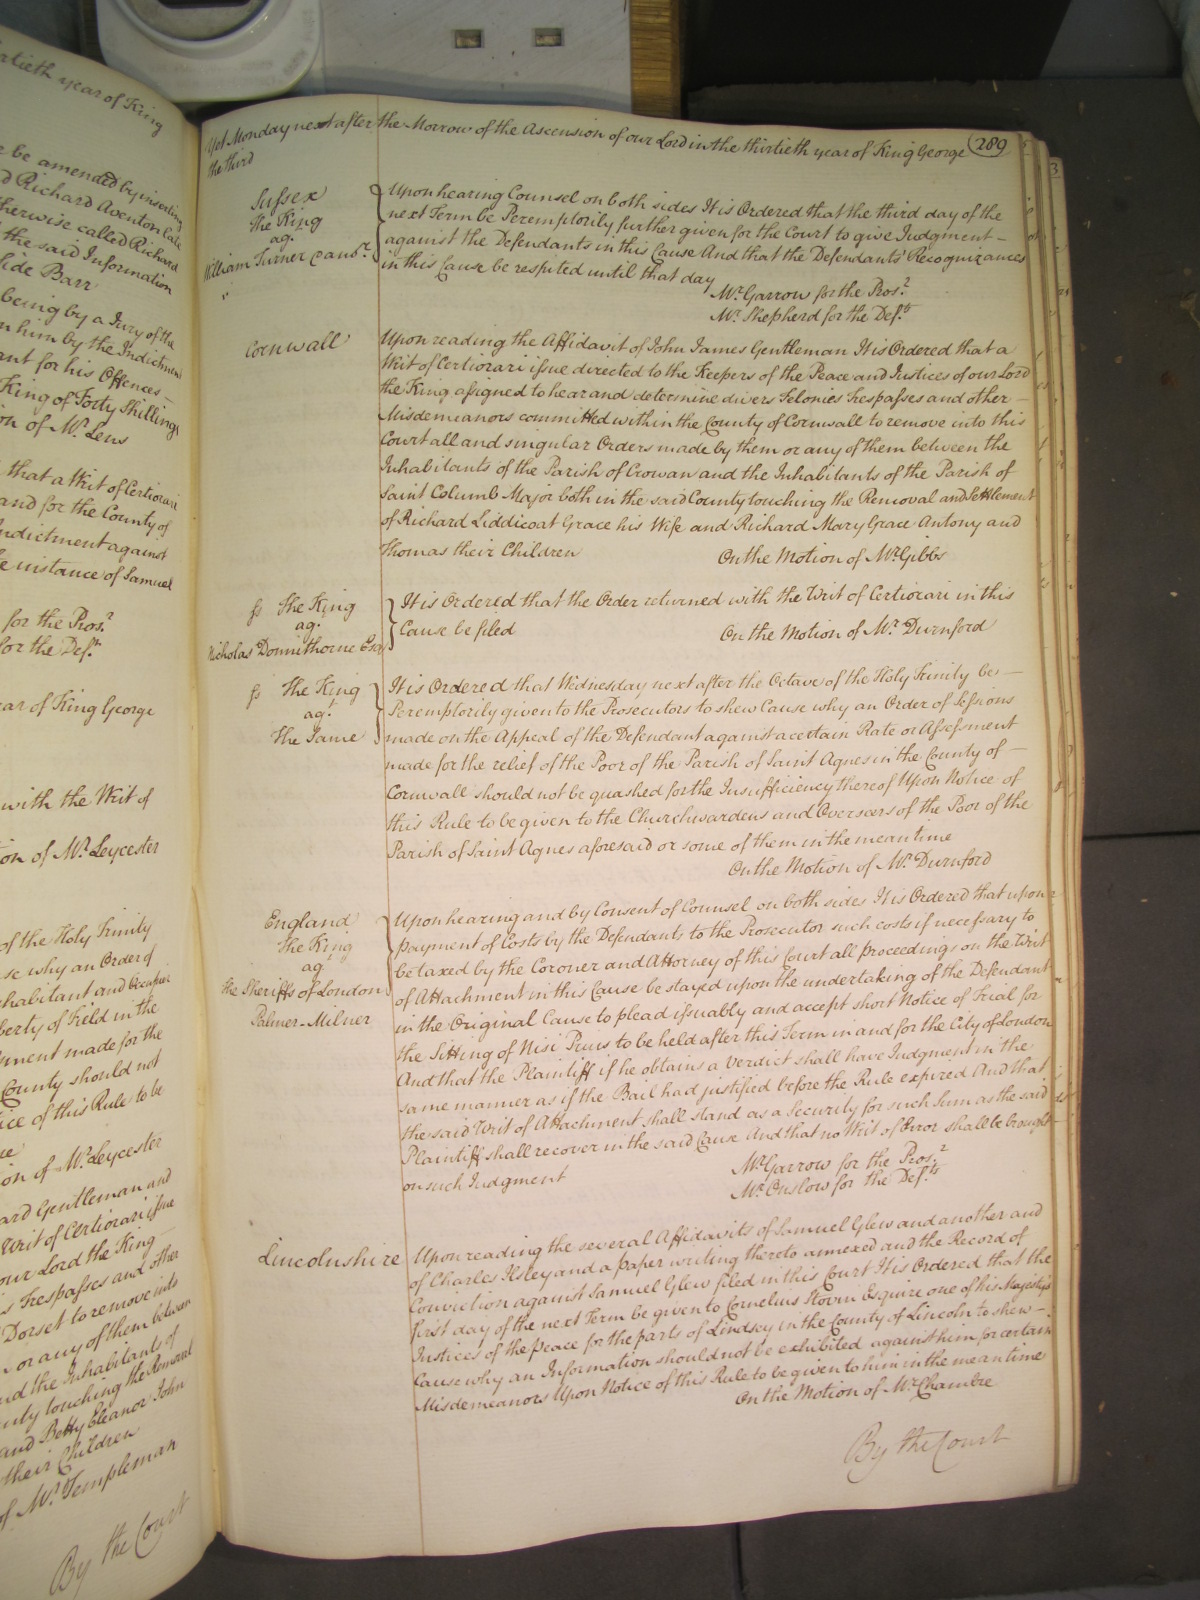 rtieth year of King
be amended by inserting
d Richard Aventon late
herwise called Richard
the said Information
Side Barr
being by a Jury of the
n him by the Indictment
ant for his Offences
King of Forty Shillings
on of Mr. Lens
that a Writ of Certiorari
and for the County of
Indictment against
e instance of Samuel
for the Prosr.
for the Deft.
ear of King George
with the Writ of
ion of Mr. Leycester
of the Holy Trinity
se why an Order of
nhabitant and Occupier
berty of Field in the
sment made for the
County should not
ice of this Rule to be
ion of Mr. Leycester
ard Gentleman and
Writ of Certiorari issue
our Lord the King
s Trespasses and other
Dorset to remove into
or any of them between
nd the Inhabitants of
unty touching the Removal
and Betty Eleanor John
their Children
of Mr. Templeman
By the Court
Yet Monday next after the Morrow of the Ascension of our Lord in the thirtieth year of King George 289
the third
Sussex
The King
ag.
William Turner & anor.
Upon hearing Counsel on both sides It is Ordered that the third day of the
next Term be Peremptorily further given for the Court to give Judgment
against the Defendants in this Cause And that the Defendants' Recognizances
in this Cause be respited until that day
Mr. Garrow for the Prosr.
Mr. Shepherd for the Defts.
Cornwall
Upon reading the Affidavit of John James Gentleman It is Ordered that a
Writ of Certiorari issue directed to the Keepers of the Peace and Justices of our Lord
the King assigned to hear and determine divers Felonies Trespasses and other
Misdemeanors committed within the County of Cornwall to remove into this
Court all and singular Orders made by them or any of them between the
Inhabitants of the Parish of Crowan and the Inhabitants of the Parish of
Saint Columb Major both in the said County touching the Removal and Settlement
of Richard Liddicoat Grace his Wife and Richard Mary Grace Antony and
Thomas their Children On the Motion of Mr. Gibbs
ss The King
ag.
Nicholas Donnithorne Esqr.
It is Ordered that the Order returned with the Writ of Certiorari in this
Cause be filed On the Motion of Mr. Durnford
ss The King
agt.
The Same
It is Ordered that Wednesday next after the Octave of the Holy Trinity be
Peremptorily given to the Prosecutors to shew Cause why an Order of Sessions
made on the Appeal of the Defendant against a certain Rate or Assessment
made for the relief of the Poor of the Parish of Saint Agnes in the County of
Cornwall should not be quashed for the Insufficiency thereof Upon Notice of
this Rule to be given to the Churchwardens and Overseers of the Poor of the
Parish of Saint Agnes aforesaid or some of them in the mean time
On the Motion of Mr. Durnford
England
The King
ag.
the Sheriffs of London
Palmer - Milner
Upon hearing and by Consent of Counsel on both sides It is Ordered that upon
payment of Costs by the Defendants to the Prosecutor such costs if necessary to
be taxed by the Coroner and Attorney of this Court all proceedings on the Writ
of Attachment in this Cause be stayed upon the undertaking of the Defendant
in the Original Cause to plead issuably and accept short Notice of Trial for
the Sitting of Nisi Prius to be held after this Term in and for the City of London
And that the Plaintiff if he obtains a Verdict shall have Judgment in the
same manner as if the Bail had justified before the Rule expired And that
the said Writ of Attachment shall stand as a Security for such Sum as the said
Plaintiff shall recover in the said Cause And that no Writ of Error shall be brought
on such Judgment
Mr. Garrow for the Prosr.
Mr. Onslow for the Defts.
Lincolnshire
Upon reading the several Affidavits of Samuel Glew and another and
of Charles Ilsley and a paper writing thereto annexed and the Record of
Conviction against Samuel Glew filed in this Court It is Ordered that the
first day of the next Term be given to Cornelius Stovin Esquire one of his Majesty's
Justices of the peace for the parts of Lindsey in the County of Lincoln to shew
Cause why an Information should not be exhibited against him for certain
Misdemeanors Upon Notice of this Rule to be given to him in the mean time
On the Motion of Mr. Chambre
By the Court